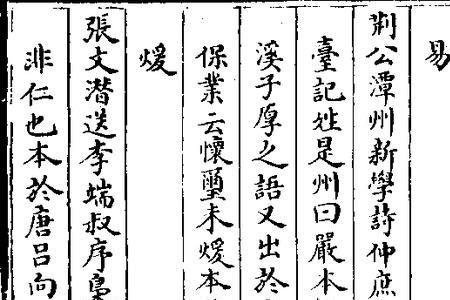 易
荆公潭州新學詩仲庶
臺記姓是州曰嚴本
溪子厚之語又出於
保業云懷璽未煖本
煖
張文潜送李端叔序梟
非仁也本於唐呂向